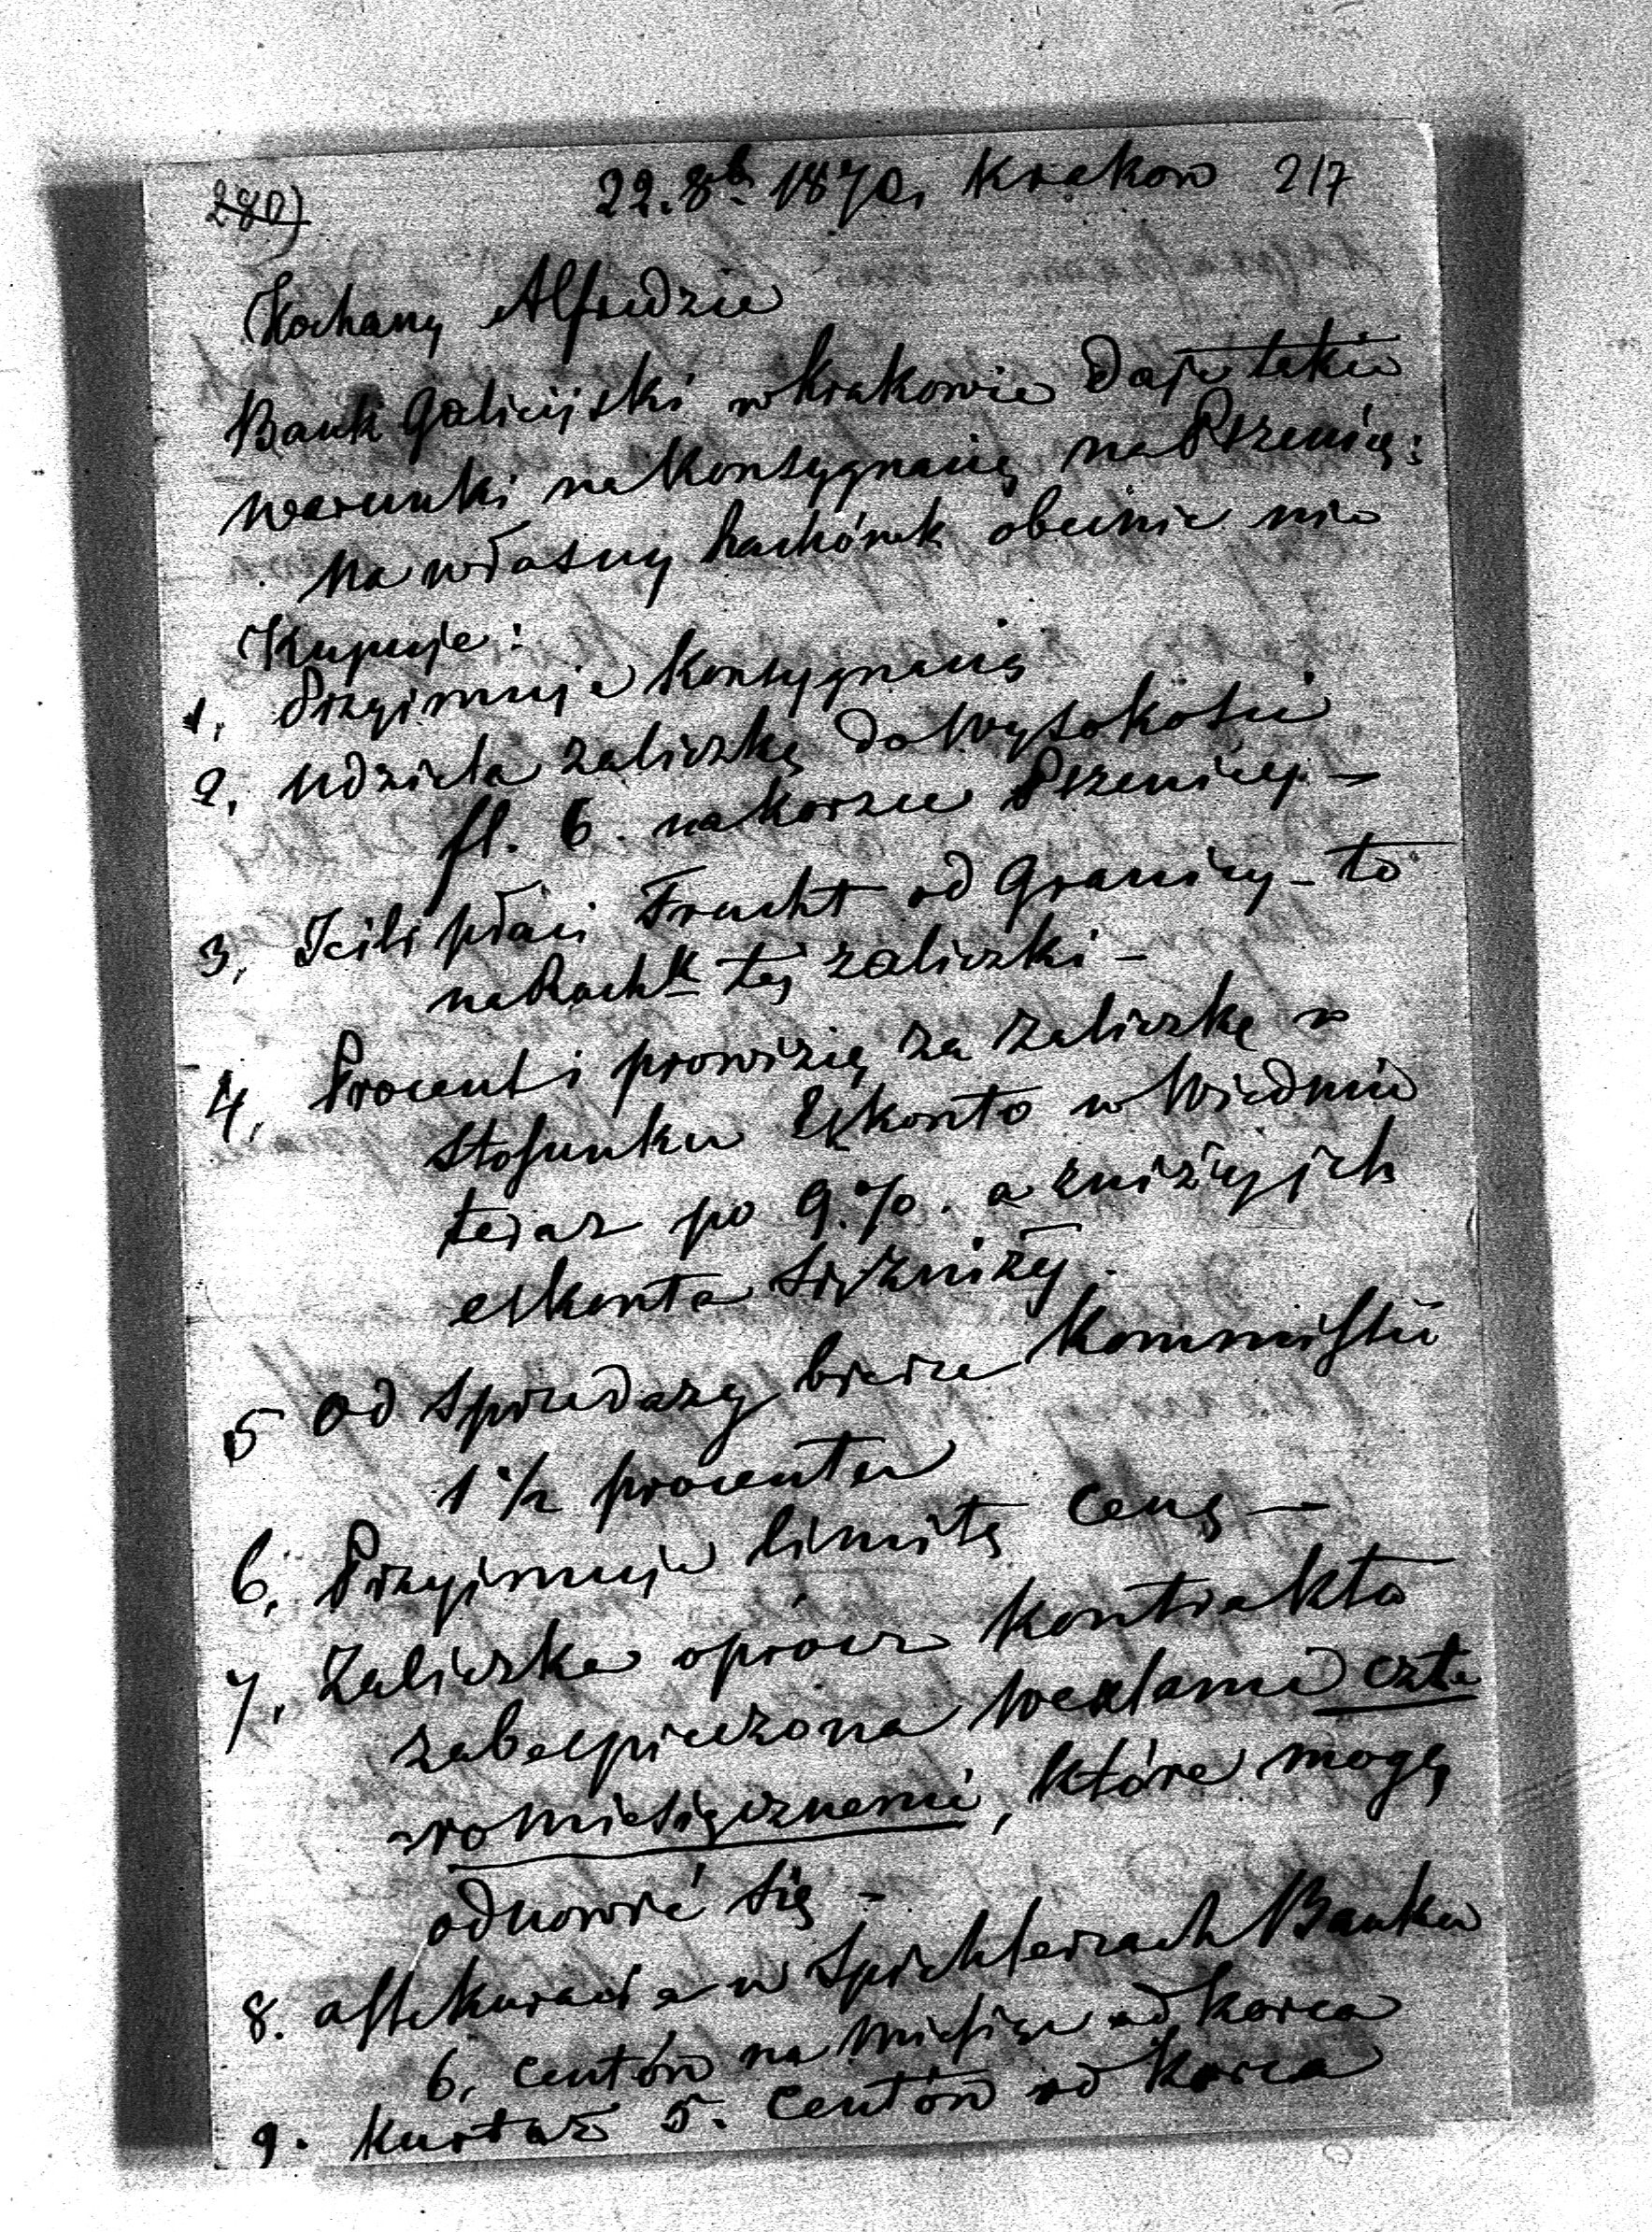 280) 22. 8b. 1870, Krakow 217
Kochany Alfredzie
Bank Galicijski w Krakowie Daje takie
warunki na Konsygnacię na Pszenicę:
Na własny Rachónek obecnie nie
Kupuje:
1, Przyimuje Konsygnacię
2, Udziela zaliczkę do Wysokości
fl. 6. na korzec Pszenicy. –
3, Jeili płaci Fracht od Granicy – to
na Rachk téj zaliczki –
4, Procent i prowizię za zaliczkę w
Stosunku Eskonto w Wiedniu
teraz po 9.%. a zniży ich
eskonta się zniży.
5 Od Sprzedazy bierze Kommissii
1 1/2 procenta
6, Przyimuje limitę Ceny –
7, Zaliczka oprócz Kontrakta
zabespieczona Wexlami czte
romiesięcznemi, które mogą
odnowić się –
8. Assekuracia w Spichlerzach Banku
6, Centów na Miesiąc od Korca
9. Kurtaż 5. Centów od Korca